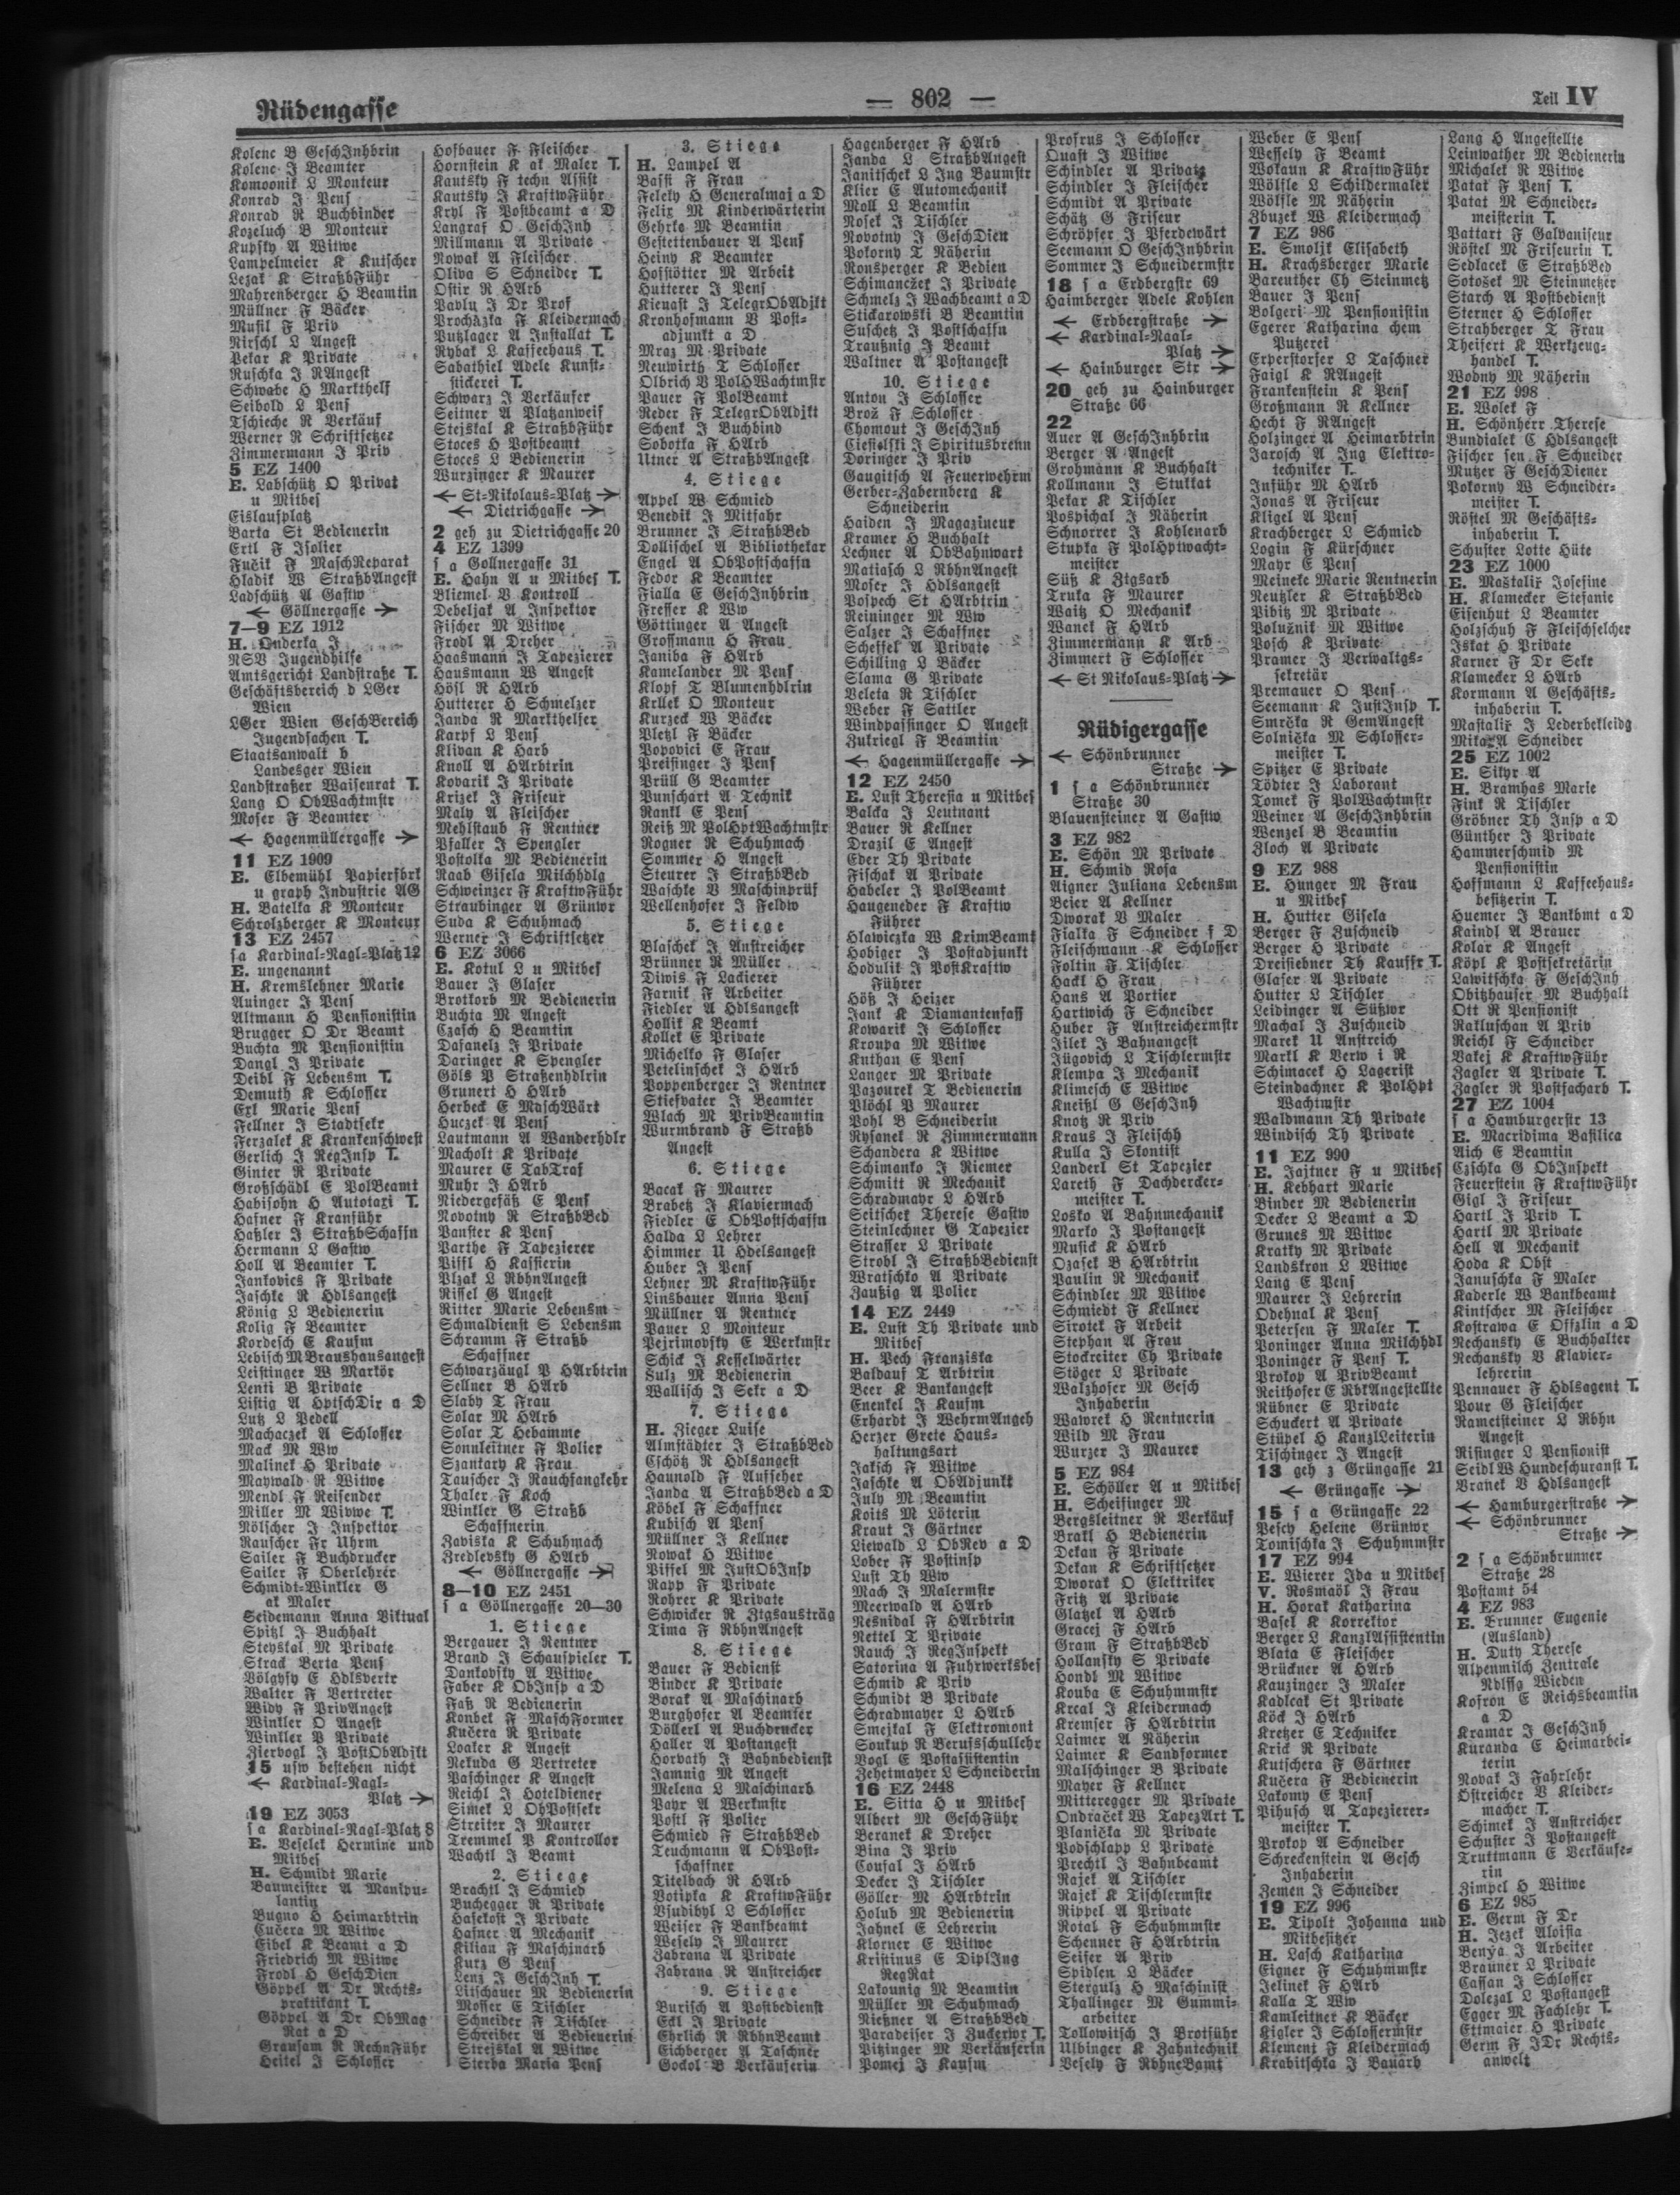 Rüdengasse
— 802 —
Teil IV
Kolenc B GeschInhbrin
Kolenc J Beamter
Komoonik L Monteur
Konrad J Pens
Konrad R Buchbinder
Kozeluch B Monteur
Kupsky A Witwe
Lampelmeier K Kutscher
Lezak K StraßbFühr
Mahrenberger H Beamtin
Müllner F Bäcker
Musil F Priv
Nirschl L Angest
Pekar K Private
Ruschka J RAngest
Schwabe H Markthelf
Seibold L Pens
Tschieche R Verkäuf
Werner R Schriftsetzer
Zimmermann J Priv
5 EZ 1400
E. Labschütz O Privat
u Mitbes
Eislaufplatz
Barta St Bedienerin
Ertl F Isolier
Fučik F MaschReparat
Hladik W StraßbAngest
Ladschütz A Gastw
← Göllnergasse →
7—9 EZ 1912
H. Onderka J
NSV Jugendhilfe
Amtsgericht Landstraße T.
Geschäftsbereich d LGer
Wien
LGer Wien GeschBereich
Jugendsachen T.
Staatsanwalt b
Landesger Wien
Landstraßer Waisenrat T.
Lang O ObWachtmstr
Moser F Beamter
← Hagenmüllergasse →
11 EZ 1909
E. Elbemühl Papierfbrk
u graph Industrie AG
H. Batelka K Monteur
Schrolzberger K Monteur
13 EZ 2457
s a Kardinal-Nagl-Platz 12
E. ungenannt
H. Kremslehner Marie
Auinger J Pens
Altmann H Pensionistin
Brugger O Dr Beamt
Buchta M Pensionistin
Dangl J Private
Deibl F Lebensm T.
Demuth K Schlosser
Exl Marie Pens
Fellner J Stadtsekr
Ferzalek K Krankenschwest
Gerlich J RegInsp T.
Ginter R Private
Großschädl E PolBeamt
Habisohn H Autotaxi T.
Hafner F Kranführ
Haßler J StraßbSchaffn
Hermann L Gastw
Holl A Beamter T.
Jankovics F Private
Jaschke R Hdlsangest
König L Bedienerin
Kolig F Beamter
Kordesch E Kaufm
Lebisch M Braushausangest
Leistinger W Markör
Lenti B Private
Listig A HptschDir a D
Lutz L Pedell
Machaczek A Schlosser
Mack M Ww
Malinek H Private
Maywald R Witwe
Mendl F Reisender
Miller M Witwe T.
Nölscher J Inspektor
Rauscher Fr Uhrm
Sailer F Buchdrucker
Sailer F Oberlehrer
Schmidt-Winkler G
ak Maler
Seidemann Anna Viktual
Spitzl J Buchhalt
Steyskal M Private
Strack Berta Pens
Völgysy E Hdlsvertr
Walter F Vertreter
Widy F PrivAngest
Winkler O Angest
Winkler V Private
Ziervogl J PostObAdjkt
15 usw bestehen nicht
← Kardinal-Nagl-
Platz →
19 EZ 3053
s a Kardinal-Nagl-Platz 8
E. Veselek Hermine und
Mitbes
H. Schmidt Marie
Baumeister A Manipu-
lantin
Bugno H Heimarbtrin
Cučera M Witwe
Eibel K Beamt a D
Friedrich M Witwe
Frodl H GeschDien
Göppel A Dr Rechts-
praktikant T.
Göppel A Dr ObMag
Rat a D
Grausam R RechnFühr
Heitel J Schlosser
Hofbauer F Fleischer
Hornstein K ak Maler T.
Kautsky F techn Assist
Kautsky J KraftwFühr
Kryl F Postbeamt a D
Langraf O GeschInh
Millmann A Private
Nowak A Fleischer
Oliva S Schneider T.
Ostir R HArb
Pavlu J Dr Prof
Procházka F Kleidermach
Putzlager A Installat T.
Rybak L Kaffeehaus T.
Sabathiel Adele Kunst-
stickerei T.
Schwarz J Verkäufer
Seitner A Platzanweis
Stejskal K StraßbFühr
Stoces H Postbeamt
Stoces L Bedienerin
Wurzinger K Maurer
← St-Nikolaus-Platz →
← Dietrichgasse →
2 geh zu Dietrichgasse 20
4 EZ 1399
s a Gollnergasse 31
E. Hahn A u Mitbes T.
Bliemel V Kontroll
Debeljak A Inspektor
Fischer M Witwe
Frodl A Dreher
Haasmann J Tapezierer
Hausmann W Angest
Hösl R HArb
Hutterer H Schmelzer
Janda R Markthelfer
Karpf L Pens
Klivan K Harb
Knoll A HArbtrin
Kovarik J Private
Krizek J Friseur
Maly A Fleischer
Mehlstaub F Rentner
Pfaller J Spengler
Postolka M Bedienerin
Raab Gisela Milchhdlg
Schweinzer F KraftwFühr
Straubinger A Grünwr
Suda K Schuhmach
Werner J Schriftsetzer
6 EZ 3066
E. Kotul L u Mitbes
Bauer J Glaser
Brotkorb M Bedienerin
Buchta M Angest
Czasch H Beamtin
Dasanelz J Private
Daringer K Spengler
Göls P Straßenhdlrin
Grunert H HArb
Herbeck E MaschWärt
Huczek A Pens
Lautmann A Wanderhdlr
Macholt K Private
Maurer E TabTraf
Muhr J HArb
Niedergesäß E Pens
Novotny R StraßbBed
Panster K Pens
Parthe F Tapezierer
Pissl H Kassierin
Plzak L RbhnAngest
Rissel G Angest
Ritter Marie Lebensm
Schmaldienst S Lebensm
Schramm F Straßb
Schaffner
Schwarzäugl P HArbtrin
Sellner B HArb
Slaby T Frau
Solar M HArb
Solar T Hebamme
Sonnleitner F Polier
Szantary K Frau
Tauscher J Rauchfangkehr
Thaler F Koch
Winkler G Straßb
Schaffnerin
Zaviska K Schuhmach
Zredlevsky G HArb
← Göllnergasse →
8—10 EZ 2451
s a Göllnergasse 20—30
1. Stiege
Bergauer J Rentner
Brand J Schauspieler T.
Dankovsky A Witwe
Faber K ObInsp a D
Faß R Bedienerin
Konbek F MaschFormer
Kučera R Private
Loaker K Angest
Nekuda G Vertreter
Paschinger K Angest
Reichl J Hoteldiener
Simek L ObPostsekr
Streiter J Maurer
Tremmel P Kontrollor
Wachtl J Beamt
2. Stiege
Brachtl J Schmied
Buchegger R Private
Hasekost J Private
Hasner A Mechanik
Kilian F Maschinarb
Kurz G Pens
Lenz J GeschInh T.
Litschauer M Bedienerin
Mosser E Tischler
Schneider F Tischler
Schreiber A Bedienerin
Strejskal A Witwe
Sterba Maria Pens
3. Stiege
H. Lampel A
Bassi F Frau
Felely H Generalmaj a D
Felix M Kinderwärterin
Gehrke M Beamtin
Gestettenbauer A Pens
Heiny K Beamter
Hofstötter M Arbeit
Hutterer J Pens
Kienast J TelegrObAdjkt
Kronhofmann B Post-
adjunkt a D
Mraz M Private
Neuwirth T Schlosser
Olbrich V PolHWachtmstr
Pauer F PolBeamt
Reder F TelegrObAdjkt
Schenk J Buchbind
Sobotka F HArb
Utner A StraßbAngest
4. Stiege
Appel W Schmied
Benedik J Mitfahr
Brunner J StraßbBed
Dollischel A Bibliothekar
Engel A ObPostschaffn
Fedor K Beamter
Fialla E GeschInhbrin
Fresser K Ww
Göttinger A Angest
Grossmann H Frau
Janiba F HArb
Kamelander M Pens
Klopf T Blumenhdlrin
Krllek O Monteur
Kurzeck W Bäcker
Pletzl F Bäcker
Popovici E Frau
Preisinger J Pens
Prüll G Beamter
Punschart A Technik
Rankl E Pens
Reiß M PolHptWachtmstr
Rogner R Schuhmach
Sommer H Angest
Steurer J StraßbBed
Waschke V Maschinprüf
Wellenhofer J Feldw
5. Stiege
Blaschek J Anstreicher
Brünner R Müller
Diwis F Lackierer
Farnik F Arbeiter
Fiedler A Hdlsangest
Hollik K Beamt
Kollek E Private
Michelko F Glaser
Petelinschek J HArb
Poppenberger J Rentner
Stiefvater J Beamter
Wlach M PrivBeamtin
Wurmbrand F Straßb
Angest
6. Stiege
Bacak F Maurer
Brabetz J Klaviermach
Fiedler E ObPostschaffn
Halda L Lehrer
Himmer U Hdelsangest
Huber J Pens
Lehner M KraftwFühr
Linsbauer Anna Pens
Müllner A Rentner
Pauer L Monteur
Pejrimovsky E Werkmstr
Schick J Kesselwärter
Sulz M Bedienerin
Wallisch J Sekr a D
7. Stiege
H. Zieger Luise
Almstädter J StraßbBed
Cschötz R Hdlsangest
Haunold F Aufseher
Janda A StraßbBed a D
Köbel F Schaffner
Kubisch A Pens
Müllner J Kellner
Nowak H Witwe
Pissel M JustObInsp
Rapp F Private
Rohrer K Private
Schwicker R Ztgsausträg
Tima F RbhnAngest
8. Stiege
Bauer F Bedienst
Binder K Private
Borak A Maschinarb
Burghofer A Beamter
Döllerl A Buchdrucker
Haller A Postangest
Horvath J Bahnbedienst
Jamnig M Angest
Melena L Maschinarb
Payr A Werkmstr
Postl F Polier
Schmied F StraßbBed
Teuchmann A ObPost-
schaffner
Titelbach R HArb
Votipka K KraftwFühr
Vsudibyl L Schlosser
Weiser F Bankbeamt
Wesely J Maurer
Zabrana A Private
Zabrana R Anstreicher
9. Stiege
Burisch A Postbedienst
Eckl J Private
Ehrlich R RbhnBeamt
Eichberger A Taschner
Gockol B Verkäuferin
Hagenberger F HArb
Janda L StraßbAngest
Janitschek L Ing Baumstr
Klier E Automechanik
Moll L Beamtin
Nosek J Tischler
Novotny J GeschDien
Pokorny T Näherin
Ronsperger K Bedien
Schimanczek J Private
Schmelz J Wachbeamt a D
Stickarowski B Beamtin
Suschetz J Postschaffn
Traußnig J Beamt
Waltner A Postangest
10. Stiege
Anton J Schlosser
Brož F Schlosser
Chomout J GeschInh
Ciesielski J Spiritusbrenn
Doringer J Priv
Gaugitsch A Feuerwehrm
Gerber-Zabernberg K
Schneiderin
Haiden J Magazineur
Kramer H Buchhalt
Lechner A ObBahnwart
Matiasch L RbhnAngest
Moser J Hdlsangest
Pospech St HArbtrin
Reininger M Ww
Salzer J Schaffner
Scheffel A Private
Schilling L Bäcker
Slama G Private
Veleta R Tischler
Weber F Sattler
Windpassinger O Angest
Zukriegl F Beamtin
← Hagenmüllergasse →
12 EZ 2450
E. Lust Theresia u Mitbes
Balcka J Leutnant
Bauer R Kellner
Drazil E Angest
Eder Th Private
Fischak A Private
Habeler J PolBeamt
Haugeneder F Kraftw
Führer
Hlawiczka W KrimBeamt
Hobiger J Postadjunkt
Hodulik J PostKraftw
Führer
Höß J Heizer
Jank K Diamantenfass
Kowarik J Schlosser
Kroupa M Witwe
Kuthan E Pens
Langer M Private
Pazourek T Bedienerin
Plöchl P Maurer
Pohl B Schneiderin
Rysanek R Zimmermann
Schandera K Witwe
Schimanko J Riemer
Schmitt R Mechanik
Schradmayr L HArb
Seitschek Therese Gastw
Steinlechner G Tapezier
Strasser L Private
Strobl J StraßbBedienst
Wratschko A Private
Zaußig A Polier
14 EZ 2449
E. Lust Th Private und
Mitbes
H. Pech Franziska
Baldauf T Arbtrin
Beer K Bankangest
Enenkel J Kaufm
Erhardt J WehrmAngeh
Herzer Grete Haus-
haltungsart
Jaksch F Witwe
Jaschke A ObAdjunkt
July M Beamtin
Koits M Löterin
Kraut J Gärtner
Liewald L ObRev a D
Lober F Postinsp
Lust Th Ww
Mach J Malermstr
Meerwald A HArb
Nesnidal F HArbtrin
Nettel T Private
Rauch J RegInspekt
Satorina A Fuhrwerksbes
Schmid K Priv
Schmidt B Private
Schradmayer L HArb
Smejkal F Elektromont
Soukup R Berufsschullehr
Vogl E Postassistentin
Zehetmayer L Schneiderin
16 EZ 2448
E. Sitta H u Mitbes
Albert M GeschFühr
Beranek K Dreher
Bina J Priv
Cousal J HArb
Decker J Tischler
Göller M HArbtrin
Holub M Bedienerin
Jahnel E Lehrerin
Klorner E Witwe
Kristinus E DiplIng
RegRat
Lakounig M Beamtin
Müller M Schuhmach
Nießner A StraßbBed
Paradeiser J Zuckerwr T.
Pitzinger M Verkäuferin
Pomej J Kaufm
Profrus J Schlosser
Quast J Witwe
Schindler A Private
Schindler J Fleischer
Schmidt A Private
Schütz G Friseur
Schröpfer J Pferdewärt
Seemann O GeschInhbrin
Sommer J Schneidermstr
18 s a Erdbergstr 69
Haimberger Adele Kohlen
← Erdbergstraße →
← Kardinal-Naal-
Platz →
← Hainburger Str →
20 geh zu Hainburger
Straße 66
22
Auer A GeschInhbrin
Berger A Angest
Grohmann K Buchhalt
Kollmann J Stukkat
Pekar K Tischler
Pospichal J Näherin
Schnorrer J Kohlenarb
Stupka F PolHptwacht-
meister
Süß K Ztgsarb
Truka F Maurer
Waitz O Mechanik
Wanek F HArb
Zimmermann K Arb
Zimmert F Schlosser
← St Nikolaus-Platz →
Rüdigergasse
← Schönbrunner
Straße →
1 s a Schönbrunner
Straße 30
Blauensteiner A Gastw
3 EZ 982
E. Schön M Private
H. Schmid Rosa
Aigner Juliana Lebensm
Beier A Kellner
Dworak V Maler
Fialka F Schneider f D
Fleischmann K Schlosser
Foltin F Tischler
Hackl H Frau
Hans A Portier
Hartwich F Schneider
Huber F Anstreichermstr
Jilek J Bahnangest
Jügovich L Tischlermstr
Klempa J Mechanik
Klimesch E Witwe
Kneißl G GeschInh
Knotz R Priv
Kraus J Fleischh
Kulla J Skontist
Landerl St Tapezier
Lareth F Dachdecker-
meister T.
Losko A Bahnmechanik
Marko J Postangest
Musick K HArb
Ozasek B HArbtrin
Paulin R Mechanik
Schindler M Witwe
Schmiedt F Kellner
Sirotek F Arbeit
Stephan A Frau
Stockreiter Ch Private
Stöger L Private
Walzhofer M Gesch
Inhaberin
Wawrek H Rentnerin
Wild M Frau
Wurzer J Maurer
5 EZ 984
E. Schöller A u Mitbes
H. Scheisinger M
Bergsleitner R Verkäuf
Brakl H Bedienerin
Dekan F Private
Dekan K Schriftsetzer
Dworak O Elektriker
Fritz A Private
Glatzel A HArb
Gracej F HArb
Gram F StraßbBed
Hollansky S Private
Hondl M Witwe
Kouba E Schuhmmstr
Kreal J Kleidermach
Kremser F HArbtrin
Laimer A Näherin
Laimer K Sandformer
Malschinger B Private
Mayer F Kellner
Mitteregger M Private
Ondráček W TapezArt T.
Planička M Private
Podschlapp L Private
Prechtl J Bahnbeamt
Rajek A Tischler
Rajek K Tischlermstr
Rippel A Private
Rotal F Schuhmmstr
Schenner F HArbtrin
Seiser A Priv
Spidlen L Bäcker
Stergulz H Maschinist
Thallinger M Gummi-
arbeiter
Tollowitsch J Brotführ
Ulbinger K Zahntechnik
Vesely F RbhneBamt
Weber E Pens
Wessely F Beamt
Wokaun K KraftwFühr
Wölfle L Schildermaler
Wölfle M Näherin
Zbuzek W Kleidermach
7 EZ 986
E. Smoljk Elisabeth
H. Krachsberger Marie
Bareuther Ch Steinmetz
Bauer J Pens
Bolgeri M Pensionistin
Egerer Katharina chem
Putzerei
Erperstorfer L Taschner
Faigl K RAngest
Frankenstein K Pens
Großmann R Kellner
Hecht F RAngest
Holzinger A Heimarbtrin
Jarosch A Ing Elektro-
techniker T.
Inführ M HArb
Jonas A Friseur
Kligel A Pens
Krachberger L Schmied
Login F Kürschner
Mayr E Pens
Meineke Marie Rentnerin
Neutzler K StraßbBed
Pibitz M Private
Polužnik M Witwe
Posch K Private
Pramer J Verwaltgs-
sekretär
Premauer O Pens
Seemann K JustInsp T.
Smrčka R GemAngest
Solnička M Schlosser-
meister T.
Spitzer E Private
Tödter J Laborant
Tomek F PolWachtmstr
Weiner A GeschInhbrin
Wenzel B Beamtin
Zloch A Private
9 EZ 988
E. Hunger M Frau
u Mitbes
H. Hutter Gisela
Berger F Zuschneid
Berger H Private
Dreisiebner Th Kauffr T.
Glaser A Private
Hutter L Tischler
Leidinger A Süßwr
Machal J Zuschneid
Marek U Anstreich
Markl K Verw i R
Schimacek H Lagerist
Steindachner K PolHpt
Wachtmstr
Waldmann Th Private
Windisch Th Private
11 EZ 990
E. Jaitner F u Mitbes
H. Kebhart Marie
Binder M Bedienerin
Decker L Beamt a D
Grunes M Witwe
Kratky M Private
Landskron L Witwe
Lang E Pens
Maurer J Lehrerin
Odehnal K Pens
Petersen F Maler T.
Poninger Anna Milchhdl
Poninger F Pens T.
Prokop A PrivBeamt
Reithofer E RbkAngestellte
Rübner E Private
Schuckert A Private
Stüpel H KanzlLeiterin
Tischinger J Angest
13 geh z Grüngasse 21
← Grüngasse →
15 s a Grüngasse 22
Pescy Helene Grünwr
Tomischka J Schuhmmstr
17 EZ 994
E. Wierer Ida u Mitbes
V. Rosmaöl J Frau
H. Horak Katharina
Basel K Korrektor
Berger L KanzlAssistentin
Blata E Fleischer
Brückner A HArb
Kauzinger J Maler
Kadlcak St Private
Köck J HArb
Kretzer E Techniker
Krick R Private
Kutschera F Gärtner
Kučera F Bedienerin
Lakomy E Pens
Pihusch A Tapezierer-
meister T.
Prokop A Schneider
Schreckenstein A Gesch
Inhaberin
Zemen J Schneider
19 EZ 996
E. Tipolt Johanna und
Mitbesitzer
H. Lasch Katharina
Eigner F Schuhmmstr
Jelinek F HArb
Kalla T Ww
Kamleitner K Bäcker
Kigler J Schlossermstr
Klement F Kleidermach
Krabitschka J Bauarb
Lang H Angestellte
Leinwather M Bedienerin
Michalek R Witwe
Patat F Pens T.
Patat M Schneider-
meisterin T.
Pattart F Galvaniseur
Röstel M Friseurin T.
Sedlacek E StraßbBed
Sotošek M Steinmetzer
Starch A Postbedienst
Sterner H Schlosser
Strahberger T Frau
Theisert K Werkzeug-
handel T.
Wodny M Näherin
21 EZ 998
E. Wolek F
H. Schönherr Therese
Bundialek C Hdlsangest
Fischer sen F Schneider
Mutzer F GeschDiener
Pokorny W Schneider-
meister T.
Röstel M Geschäfts-
inhaberin T.
Schuster Lotte Hüte
23 EZ 1000
E. Maštalíř Josefine
H. Klamecker Stefanie
Eisenhut L Beamter
Holzschuh F Fleischselcher
Iskat H Private
Karner F Dr Sekr
Klamecker L HArb
Kormann A Geschäfts-
inhaberin T.
Mastalíř J Lederbekleidg
Mikaz A Schneider
25 EZ 1002
E. Sikyr A
H. Bramhas Marie
Fink R Tischler
Gröbner Th Insp a D
Günther J Private
Hammerschmid M
Pensionistin
Hoffmann L Kaffeehaus-
besitzerin T.
Huemer J Bankbmt a D
Kaindl A Brauer
Kolar K Angest
Köpl K Postsekretärin
Lawitschka F GeschInh
Obitzhauser M Buchhalt
Ott R Pensionist
Rakluschan A Priv
Reichl F Schneider
Vakej K KraftwFühr
Zagler A Private T.
Zagler R Postfacharb T.
27 EZ 1004
s a Hamburgerstr 13
E. Macridima Basilica
Aich E Beamtin
Czschka G ObInspekt
Feuerstein F KraftwFühr
Gigl J Friseur
Hartl J Priv T.
Hartl M Private
Hell A Mechanik
Hoda K Obst
Januschka F Maler
Kaderle W Bankbeamt
Kintscher M Fleischer
Kostrawa E Offzlin a D
Nechansky E Buchhalter
Nechansky V Klavier-
lehrerin
Pennauer F Hdlsagent T.
Pour G Fleischer
Rametsteiner L Rbhn
Angest
Risinger L Pensionist
Seidl W Hundeschuranst T.
Vranek V Hdlsangest
← Hamburgerstraße →
← Schönbrunner
Straße →
2 s a Schönbrunner
Straße 28
Postamt 54
4 EZ 983
E. Trunner Eugenie
(Ausland)
H. Duty Therese
Alpenmilch Zentrale
Ndlssg Wieden
Kofron E Reichsbeamtin
a D
Kramar J GeschInh
Kuranda E Heimarbei-
terin
Novak J Fahrlehr
Östreicher V Kleider-
macher T.
Schimek J Anstreicher
Schuster J Postangest
Truttmann E Verkäufe-
rin
Zimpel H Witwe
6 EZ 985
E. Germ F Dr
H. Jezek Aloisia
Benya J Arbeiter
Brauner L Private
Cassan J Schlosser
Dolezal L Postangest
Egger M Fachlehr T.
Ettmaier H Private
Germ F JDr Rechts-
anwelt